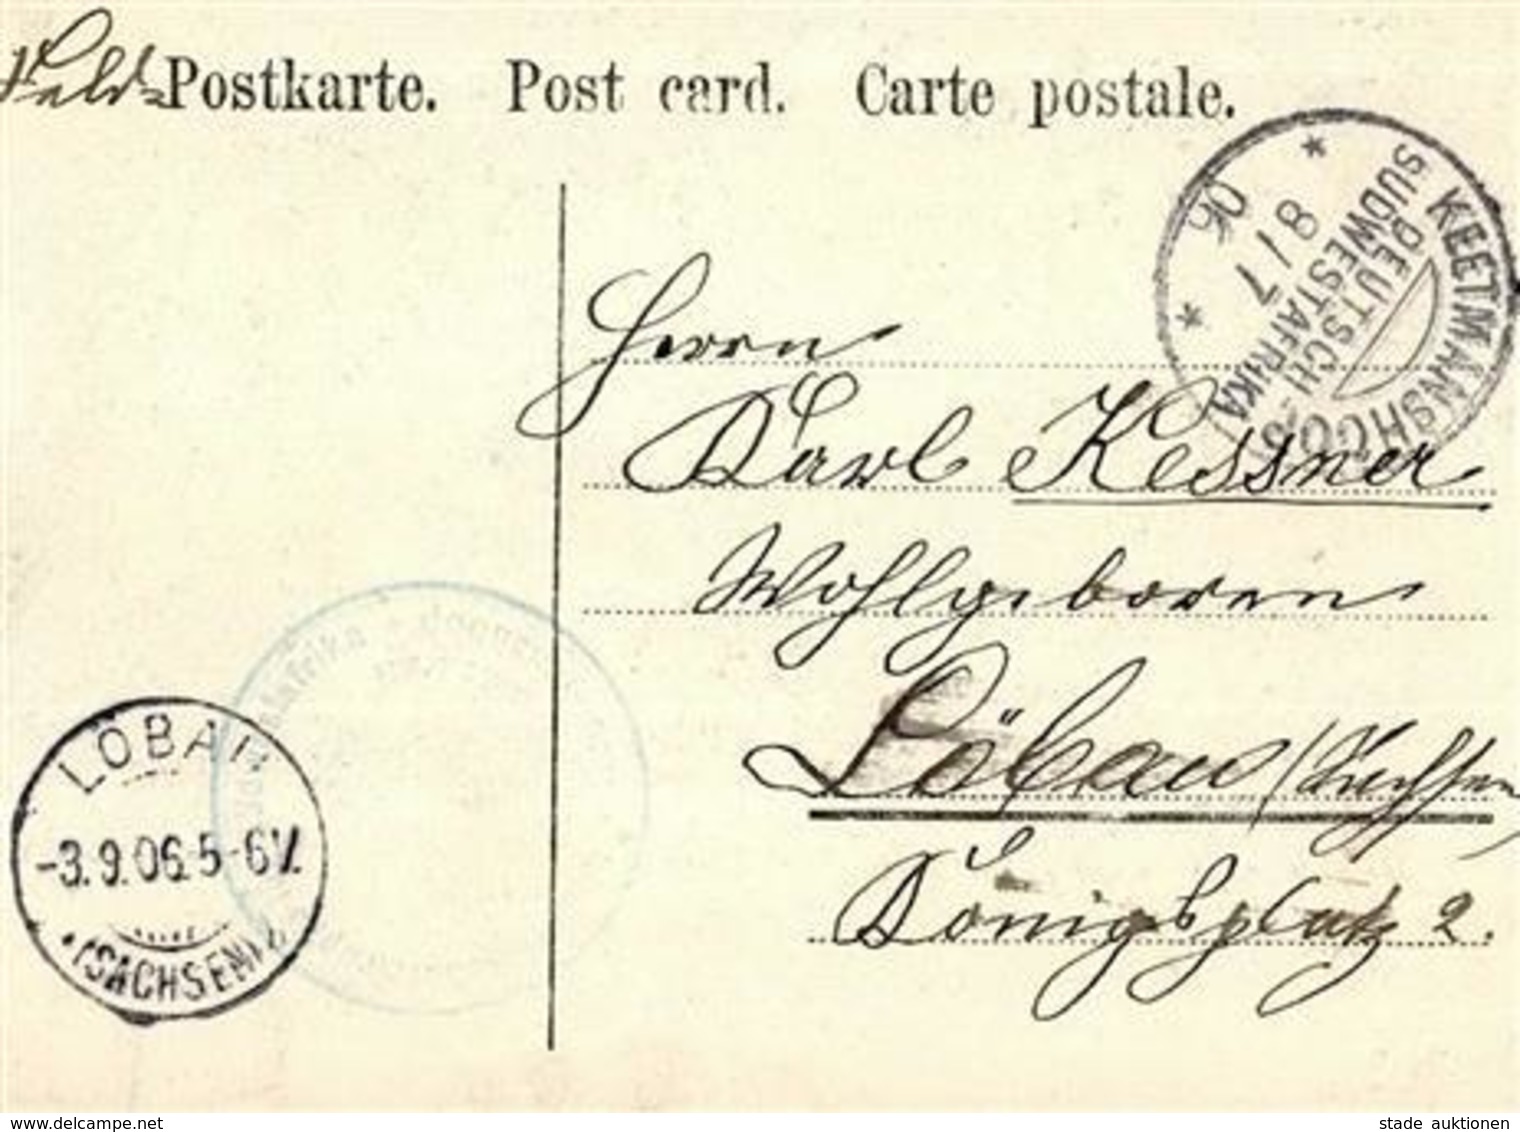 Feld-Postkarte. Post card. Carte postale.
KEETMANSHOOP
DEUTSCH-
SÜDWESTAFRIKA
8/7
06
Herrn
Karl Kessner
Wohlgeboren
Löbau (Sachsen)
Königsplatz 2.
LÖBAU
-3.9.06.5-6V.
(SACHSEN)
www.delcampe.net
stade auktionen